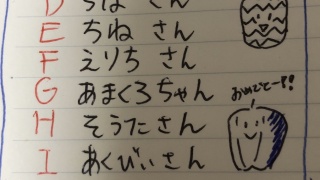 D ちは さん
E ちね さん
F えりち さん
G あまくろちゃん
おめでとー!!
H そうた さん
I あくびぃ さん